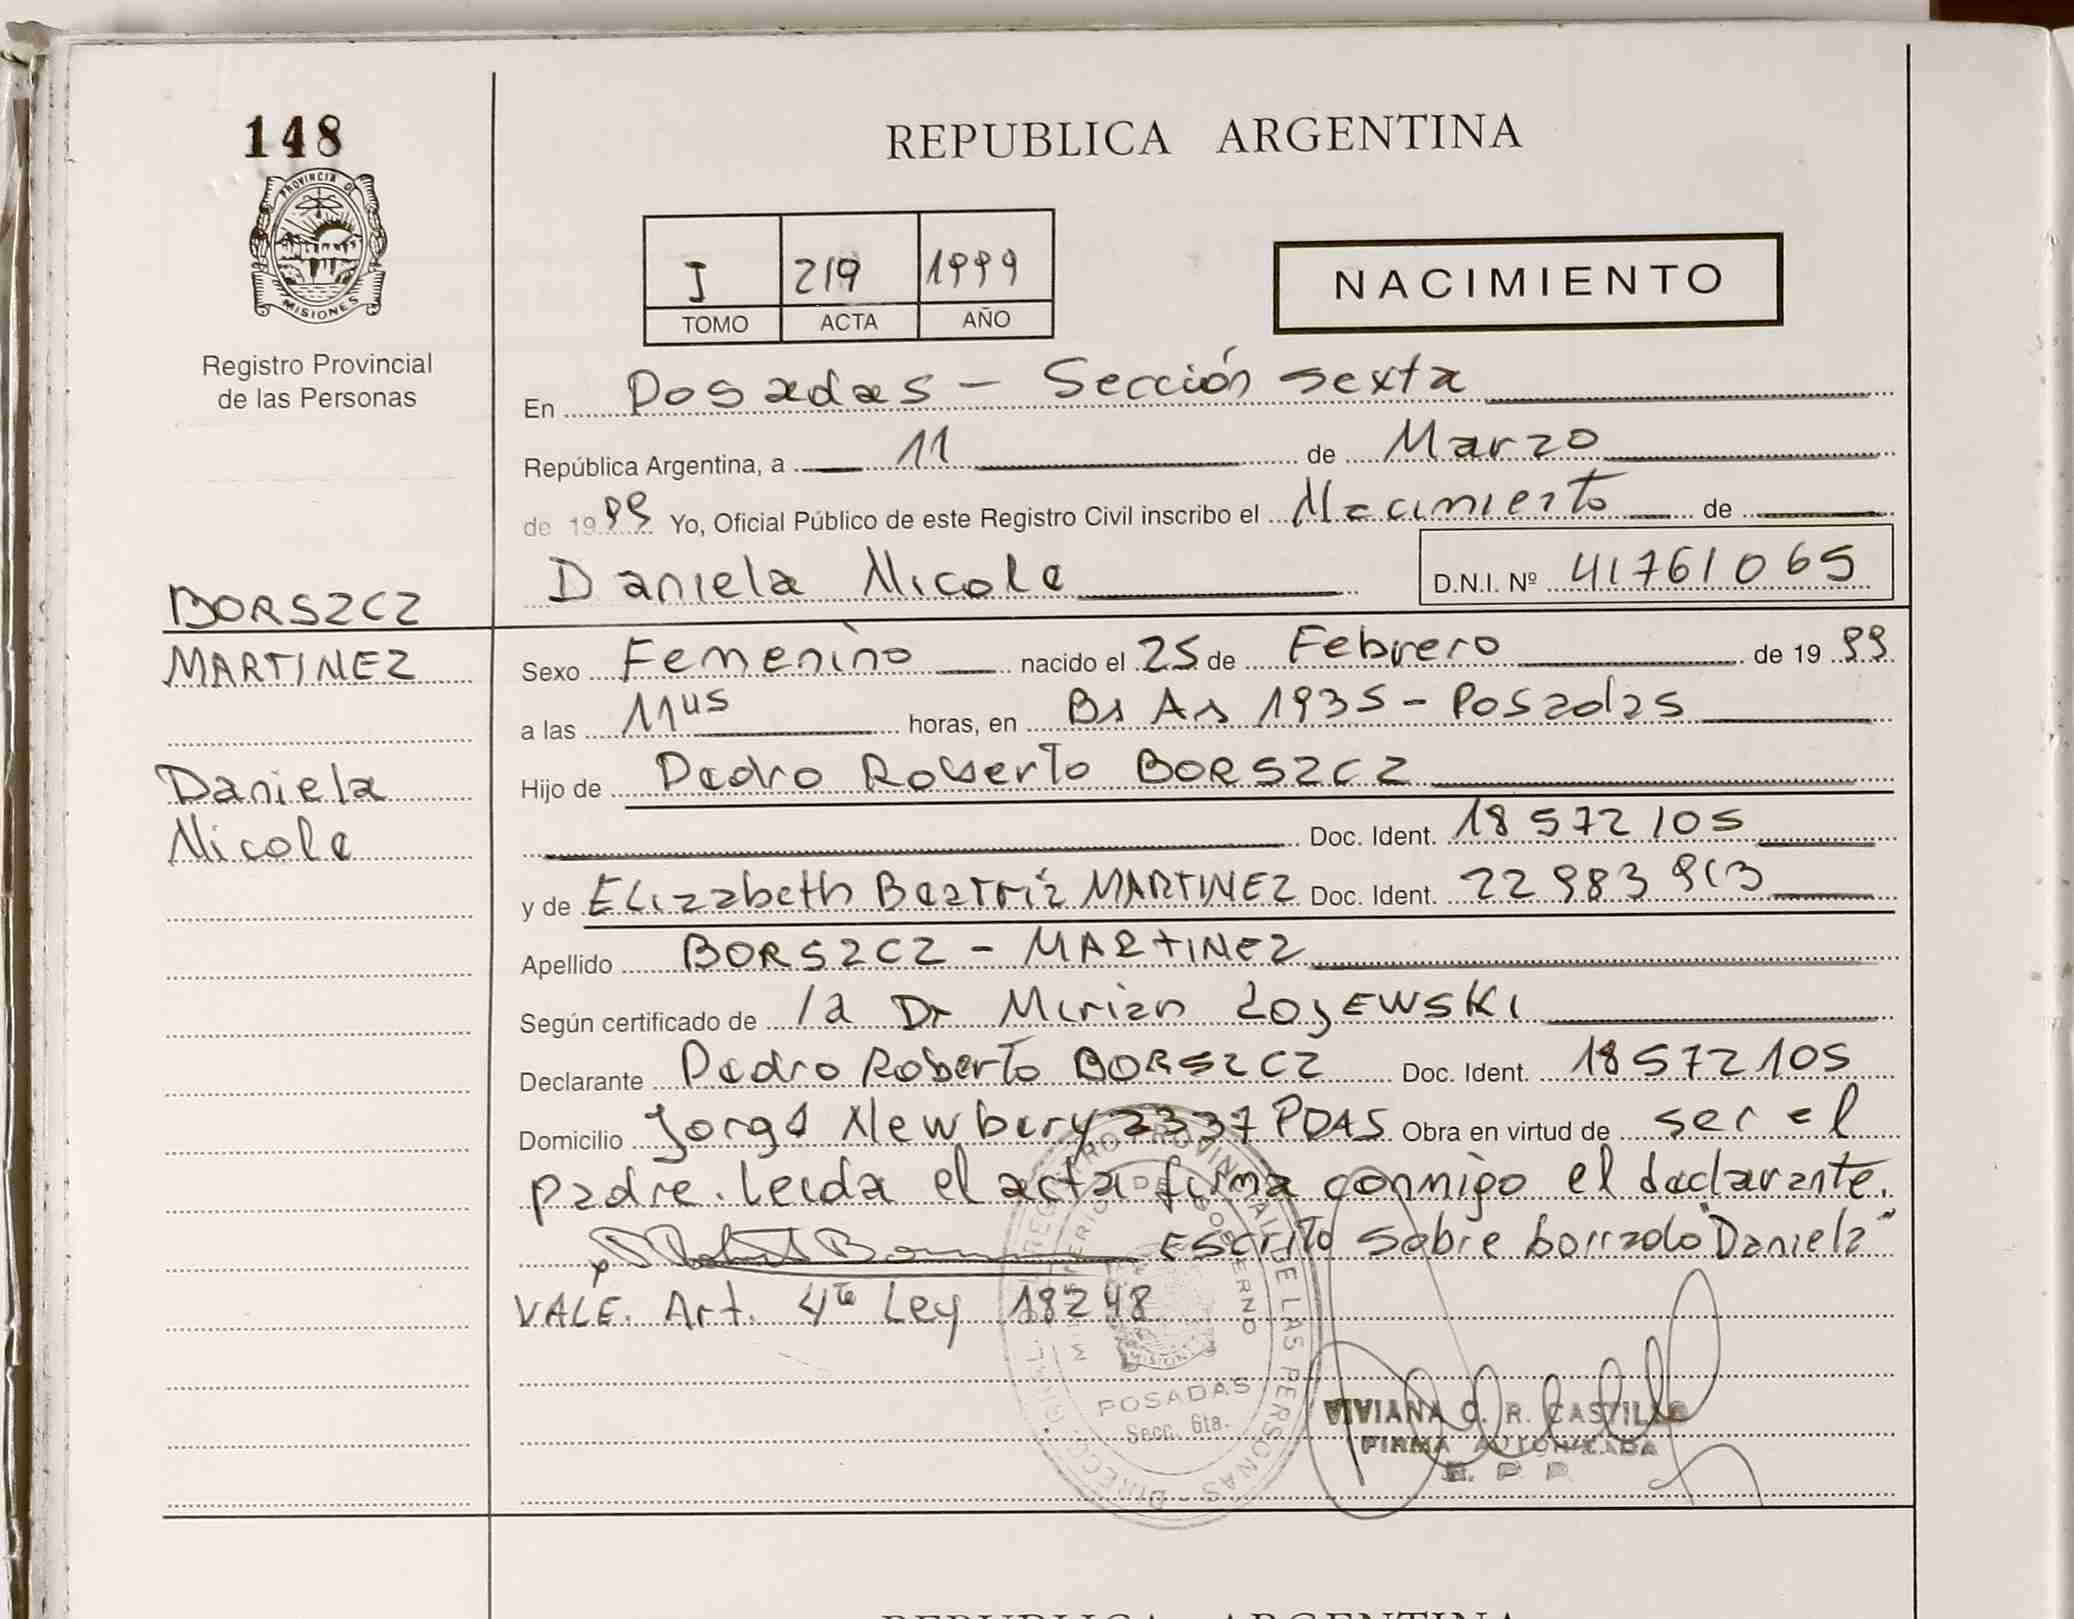 148
PROVINCIA DE
MISIONES
Registro Provincial
de las Personas
BORSZCZ
MARTINEZ
Daniela
Nicole
REPUBLICA ARGENTINA
I 219 1999
TOMO ACTA AÑO
NACIMIENTO
En Posadas - Sección sexta
República Argentina, a 11 de Marzo
de 1999 Yo, Oficial Público de este Registro Civil inscribo el Nacimiento de
Daniela Nicole D.N.I. Nº 41761065
Sexo Femenino nacido el 25 de Febrero de 1999
a las 11 45 horas, en Bs As 1935 - Posadas
Hijo de Pedro Roberto BORSZCZ
Doc. Ident. 18572105
y de Elizabeth Beatriz MARTINEZ Doc. Ident. 22983913
Apellido BORSZCZ - MARTINEZ
Según certificado de la Dr Mirian ZojEWSKI
Declarante Pedro Roberto BORSZCZ Doc. Ident. 18572105
Domicilio Jorge Newbery 2337 PDAS Obra en virtud de ser el
padre. Leida el acta firma conmigo el declarante.
Escrito sobre borrado "Daniela"
VALE. Art. 4to Ley 18248
REGISTRO PROVINCIAL DE LAS PERSONAS
MINISTERIO DE GOBIERNO
MISIONES
POSADAS
Secc. 6ta.
VIVIANA C. R. CASTILLO
FIRMA AUTORIZADA
R. P. P.
REPUBLICA ARGENTINA